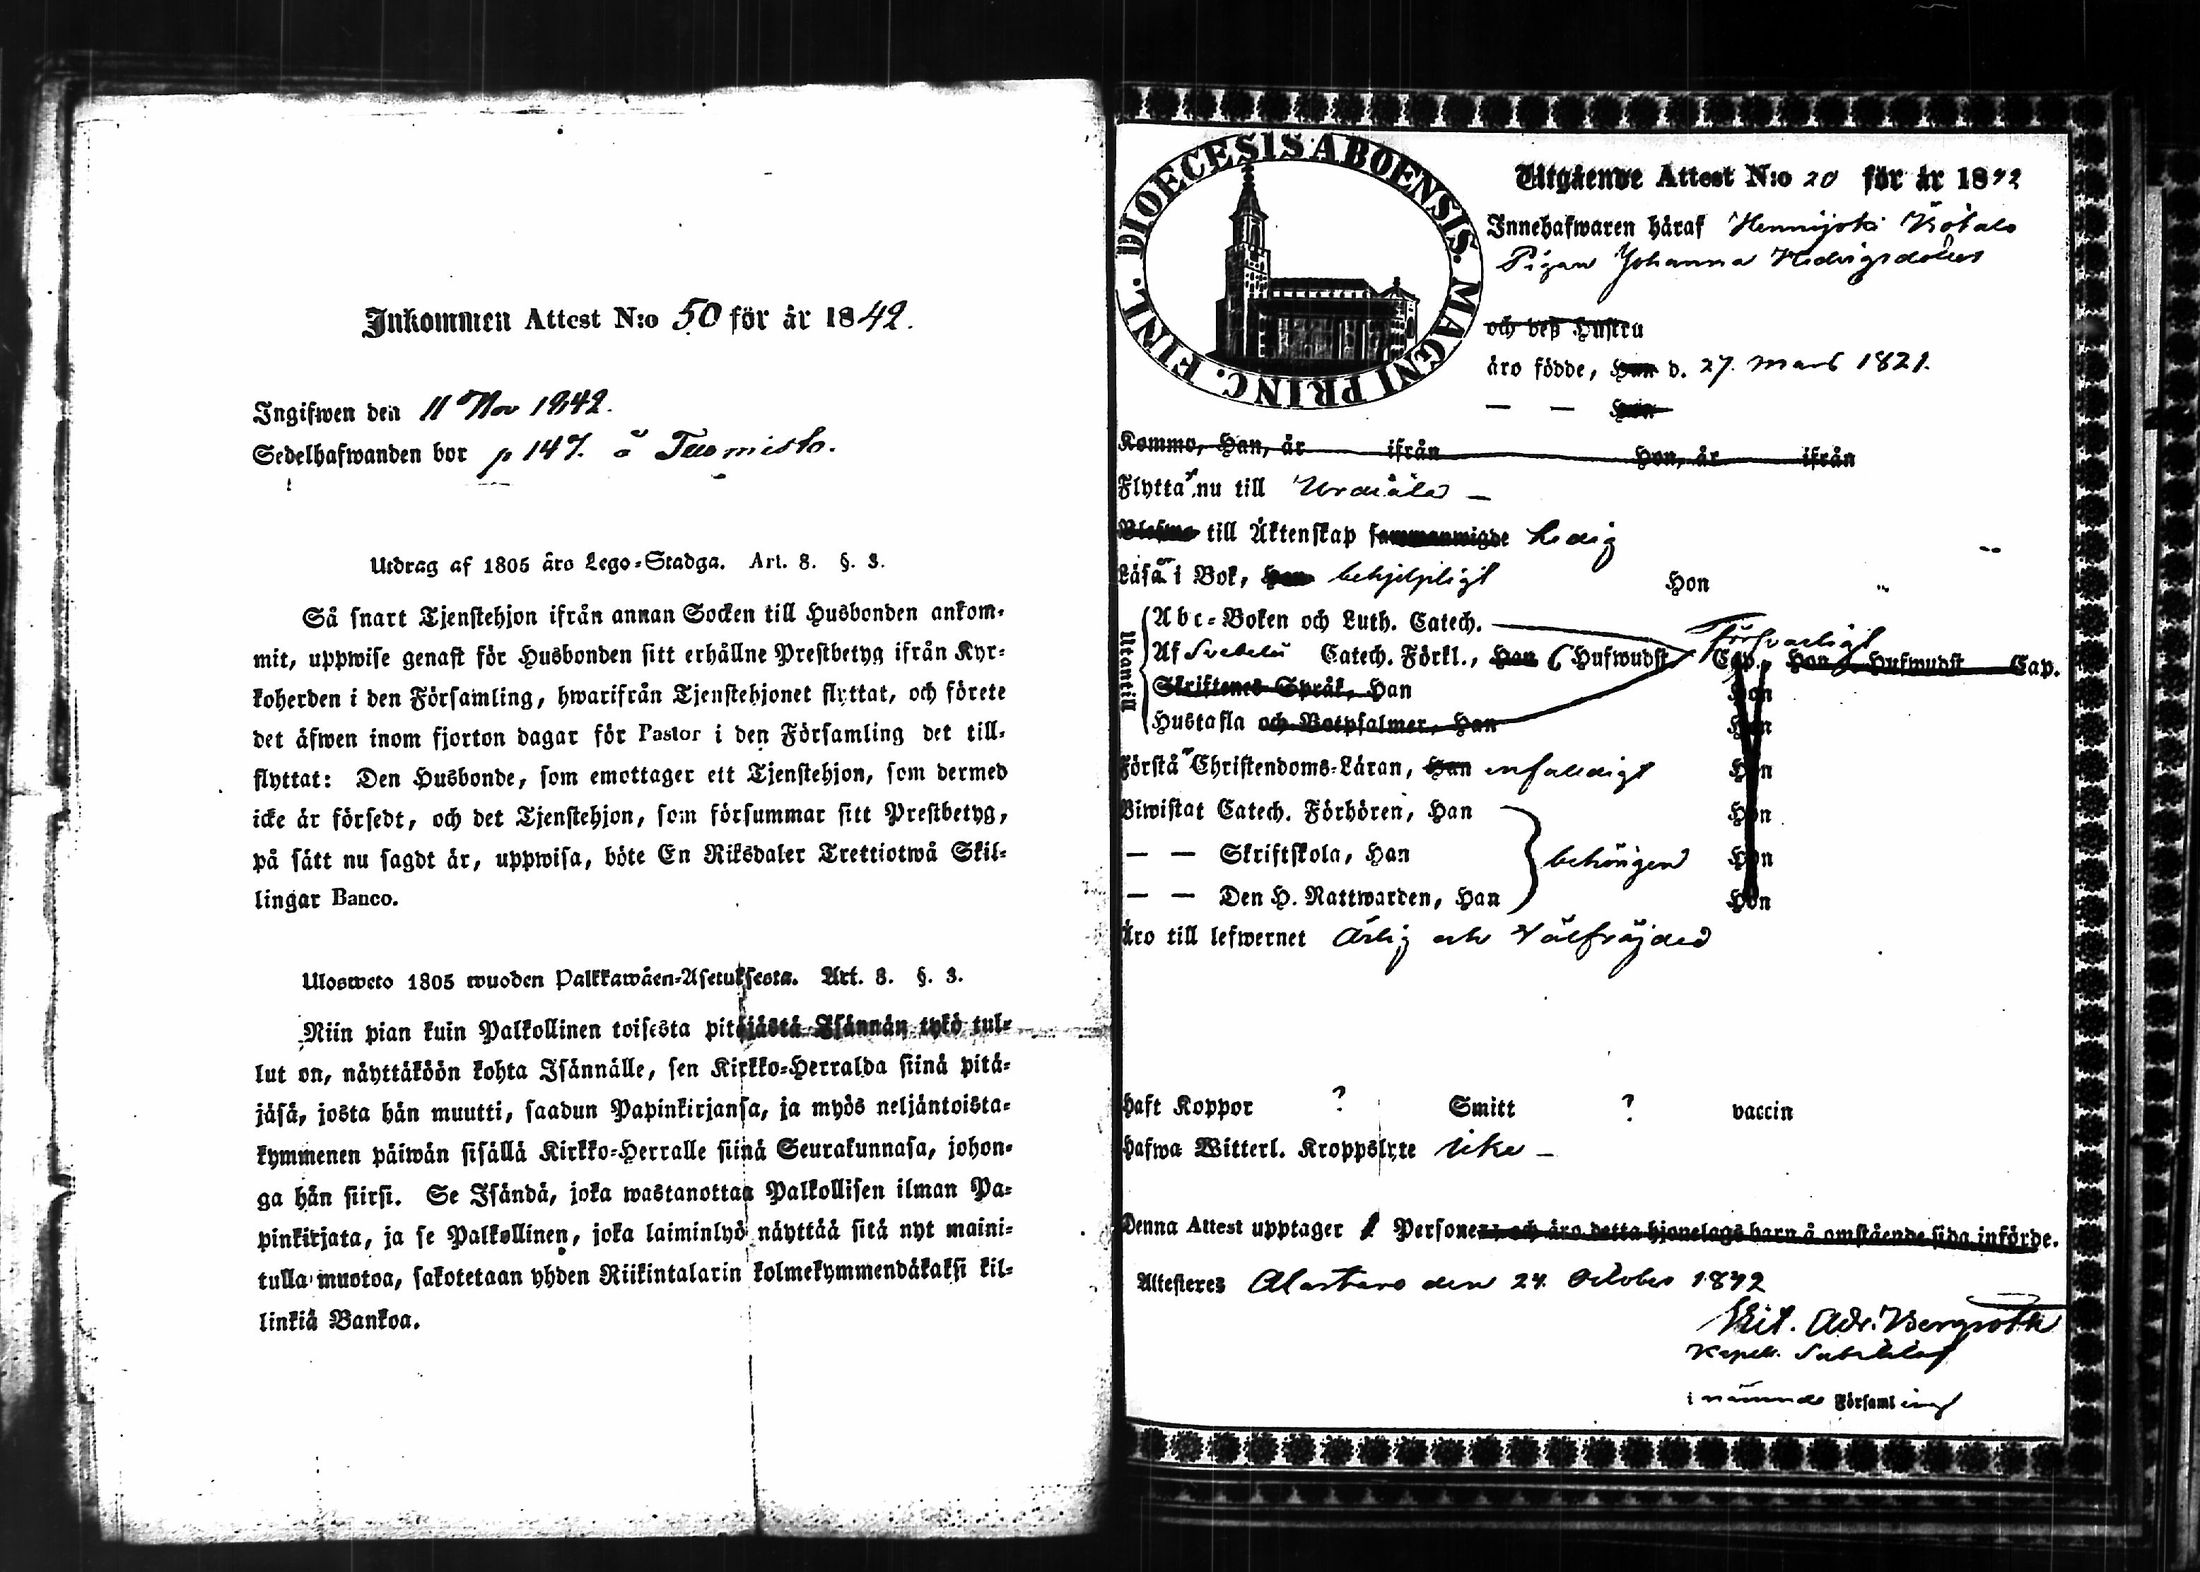 Inkommen Attest N:o 50 för år 1842.
Ingifwen den 11 Nov 1842.
Sedelhafwanden bor p 147. å Tuomisto.
Utdrag af 1805 års Lego-Stadga. Art. 8. §. 3.
Så snart Tjenstehjon ifrån annan Socken till Husbonden ankom-
mit, uppwise genast för Husbonden sitt erhållne Prestbetyg ifrån Kyr-
koherden i den Församling, hwarifrån Tjenstehjonet flyttat, och förete
det äfwen inom fjorton dagar för Pastor i den Församling det till-
flyttat: Den Husbonde, som emottager ett Tjenstehjon, som dermed
icke är försedt, och det Tjenstehjon, som försummar sitt Prestbetyg,
på sätt nu sagdt är, uppwisa, böte En Riksdaler Trettiotwå Skil-
lingar Banco.
Ulosweto 1805 wuoden Palkkawäen-Asetuksesta. Art. 8. §. 3.
Niin pian kuin Palkollinen toisesta pitäjästä Isännän tykö tul-
lut on, näyttäköön kohta Isännälle, sen Kirkko-Herralda siinä pitä-
jäsä, josta hän muutti, saadun Papinkirjansa, ja myös neljäntoista-
kymmenen päiwän sisällä Kirkko-Herralle siinä Seurakunnasa, johon-
ga hän siirsi. Se Isändä, joka wastanottaa Palkollisen ilman Pa-
pinkirjata, ja se Palkollinen, joka laiminlyö näyttää sitä nyt maini-
tulla muotoa, sakotetaan yhden Riikintalarin kolmekymmendäkaksi kil-
linkiä Bankoa.
DIOECESIS ABOENSIS. MAGNI PRINC. FINL.
Utgående Attest N:o 20 för år 1842
Innehafwaren häraf
Pigan Johanna Hedvigsdotter
och deß Hustru
äro födde, Han d. 27. Mars 1821.
— — Hon
Kommo, Han, år ifrån Hon, år ifrån
Flytta nu till Urdiala —
till Äktenskap sammanwigde Ledig
Läsa i Bok, Han behjelpligt Hon "
Utantill
Abc-Boken och Luth. Catech. Försvarligt
Af Svebelii Catech. Förkl., Han 6 Hufwudst. Cap. Hon Hufwudst Cap.
Skriftenes Språk, Han Hon
Hustafla och Botpsalmer, Han Hon
Förstå Christendoms-Läran, Han enfaldigt Hon
Biwistat Catech. Förhören, Han Hon
— — Skriftskola, Han behörigen Hon
— — Den H. Nattwarden, Han Hon
Äro till lefwernet Ärlig och Välfräjdad
haft Koppor ? Smitt ? vaccin
hafwa Witterl. Kroppslyte icke —
Denna Attest upptager 1 Personer; och äro detta hjonelags barn å omstående sida införde.
Attesteres Alastaro den 24. October 1842
Adr. Bergroth
Kapell.
i nämnde Församling